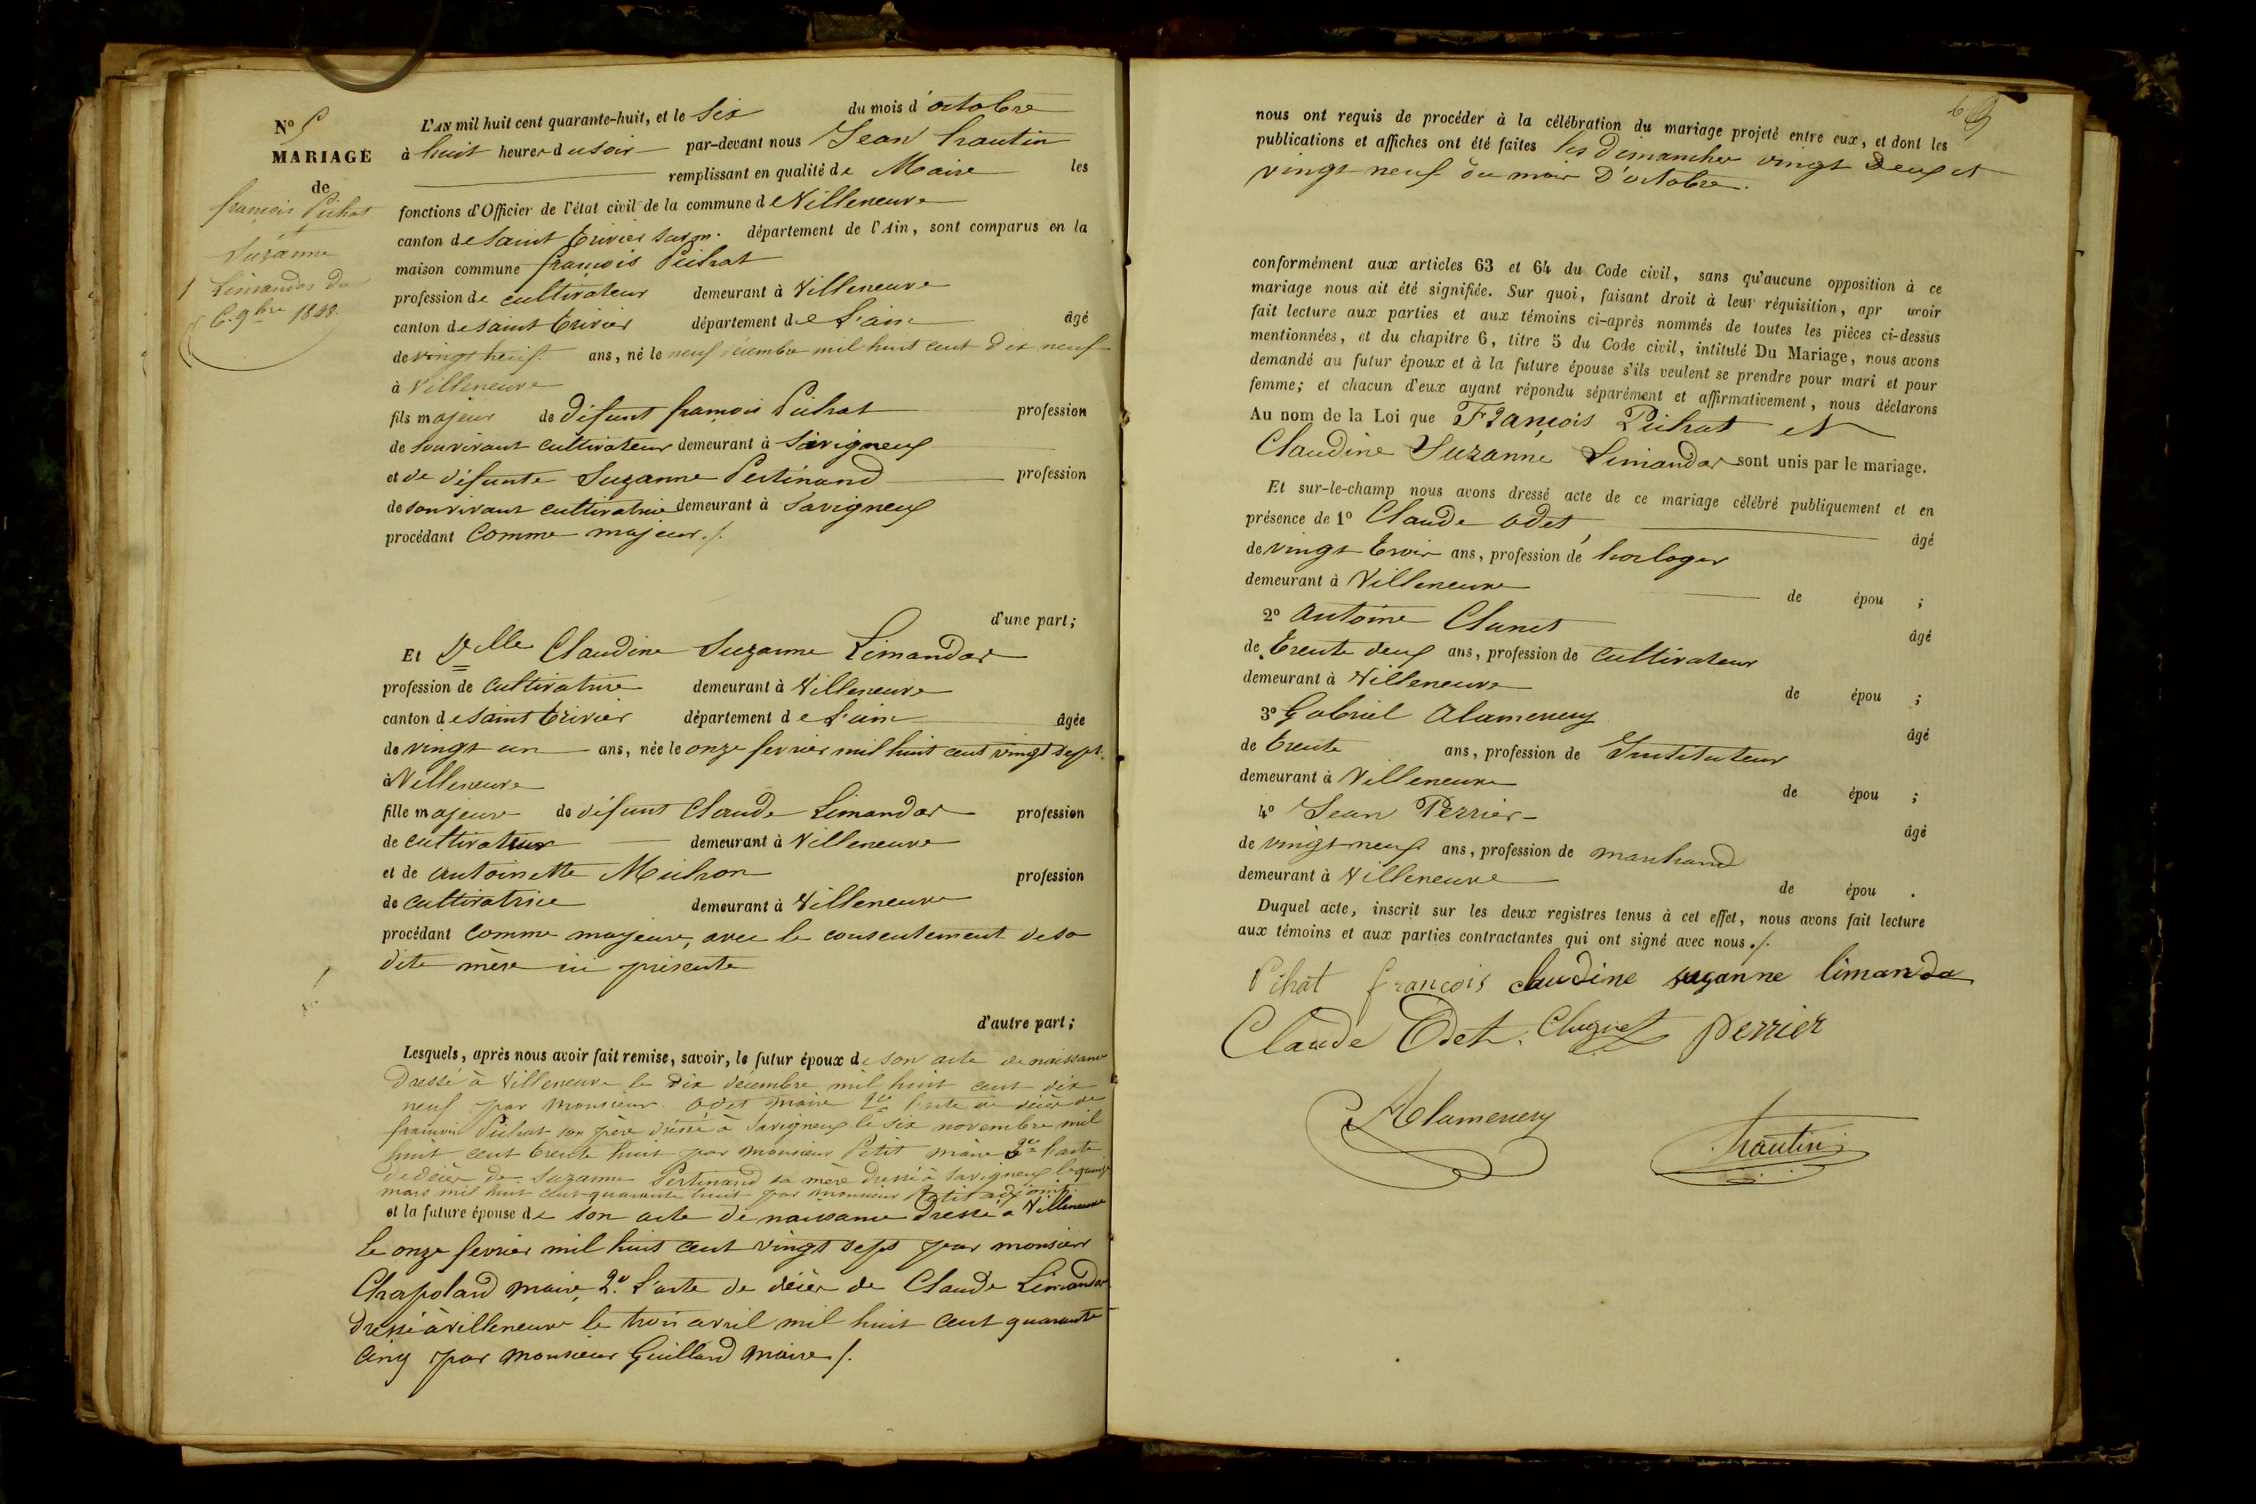 N° 5
MARIAGE
de
françois Pichat
et
Suzanne
Limandas du
6. 9bre 1848.
L'AN mil huit cent quarante-huit, et le Six du mois d'octobre
à huit heures du soir par-devant nous Jean Trautin
remplissant en qualité de Maire les
fonctions d'Officier de l'état civil de la commune de Villeneuve
canton de Saint Trivier département de l'Ain, sont comparus en la
maison commune françois Pichat
profession de cultivateur demeurant à Villeneuve
canton de saint Trivier département de l'ain âgé
de vingt neuf ans, né le neuf décembre mil huit cent dix neuf
à Villeneuve
fils majeur de défunt françois Pichat profession
de son vivant cultivateur demeurant à Savigneux
et de défunte Suzanne Pertinand profession
de son vivant cultivatrice demeurant à Savigneux
procédant comme majeur ./.
d'une part;
Et Delle Claudine Suzanne Limandas
profession de cultivatrice demeurant à Villeneuve
canton de saint Trivier département de l'ain âgée
de vingt un ans, née le onze fevrier mil huit cent vingt sept.
à Villeneuve
fille majeure de défunt Claude Limandas profession
de cultivateur demeurant à Villeneuve
et de antoinette Michon profession
de cultivatrice demeurant à Villeneuve
procédant comme majeure, avec le consentement de sa
dite mère ici présente
d'autre part;
Lesquels, après nous avoir fait remise, savoir, le futur époux de son acte de naissance
Dressé à Villeneuve le dix décembre mil huit cent dix
neuf par Monsieur Odet maire 2° l'acte de décès de
françois Pichat son père dressé à Savigneux le six novembre mil
huit cent trente huit par monsieur Petit maire 3° l'acte
de décès de Suzanne Pertinand sa mère dressé à Savigneux le quinze
mars mil huit cent quarante huit par monsieur Petit adjoint
et la future épouse de son acte de naissance dressé à Villeneuve
le onze fevrier mil huit cent vingt sept par monsieur
Chapoland maire, 2° L'acte de décès de Claude Limandas
dressé à villeneuve le trois avril mil huit cent quarante
cinq par monsieur Guilland maire ./.
nous ont requis de procéder à la célébration du mariage projeté entre eux, et dont les
publications et affiches ont été faites les Dimanches vingt Deux et
vingt neuf du mois D'octobre.
conformément aux articles 63 et 64 du Code civil, sans qu'aucune opposition à ce
mariage nous ait été signifiée. Sur quoi, faisant droit à leur réquisition, apr avoir
fait lecture aux parties et aux témoins ci-après nommés de toutes les pièces ci-dessus
mentionnées, et du chapitre 6, titre 5 du Code civil, intitulé Du Mariage, nous avons
demandé au futur époux et à la future épouse s'ils veulent se prendre pour mari et pour
femme; et chacun d'eux ayant répondu séparément et affirmativement, nous déclarons
Au nom de la Loi que François Pichat et
Claudine Suzanne Limandas sont unis par le mariage.
Et sur-le-champ nous avons dressé acte de ce mariage célébré publiquement et en
présence de 1° Claude Odet, âgé
de vingt trois ans, profession de horloger
demeurant à Villeneuve de épou ;
2° antoine Clunet âgé
de trente deux ans, profession de cultivateur
demeurant à Villeneuve de épou ;
3° Gabriel Alamercery âgé
de trente ans, profession de Instituteur
demeurant à Villeneuve de épou ;
4° Jean Perrier âgé
de vingt neuf ans, profession de marchand
demeurant à Villeneuve de épou .
Duquel acte, inscrit sur les deux registres tenus à cet effet, nous avons fait lecture
aux témoins et aux parties contractantes qui ont signé avec nous ./.
Pihat françois claudine suzanne limanda
Claude Odet. Clugnet perrier
Alamercery Trautin